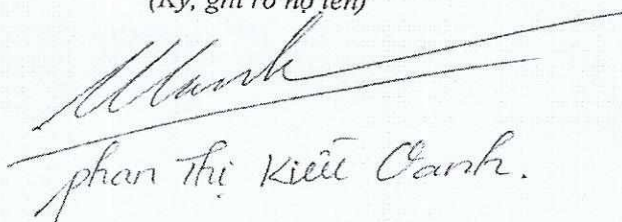 (Ký, ghi rõ họ tên)
Oanh
phan Thị Kiều Oanh.